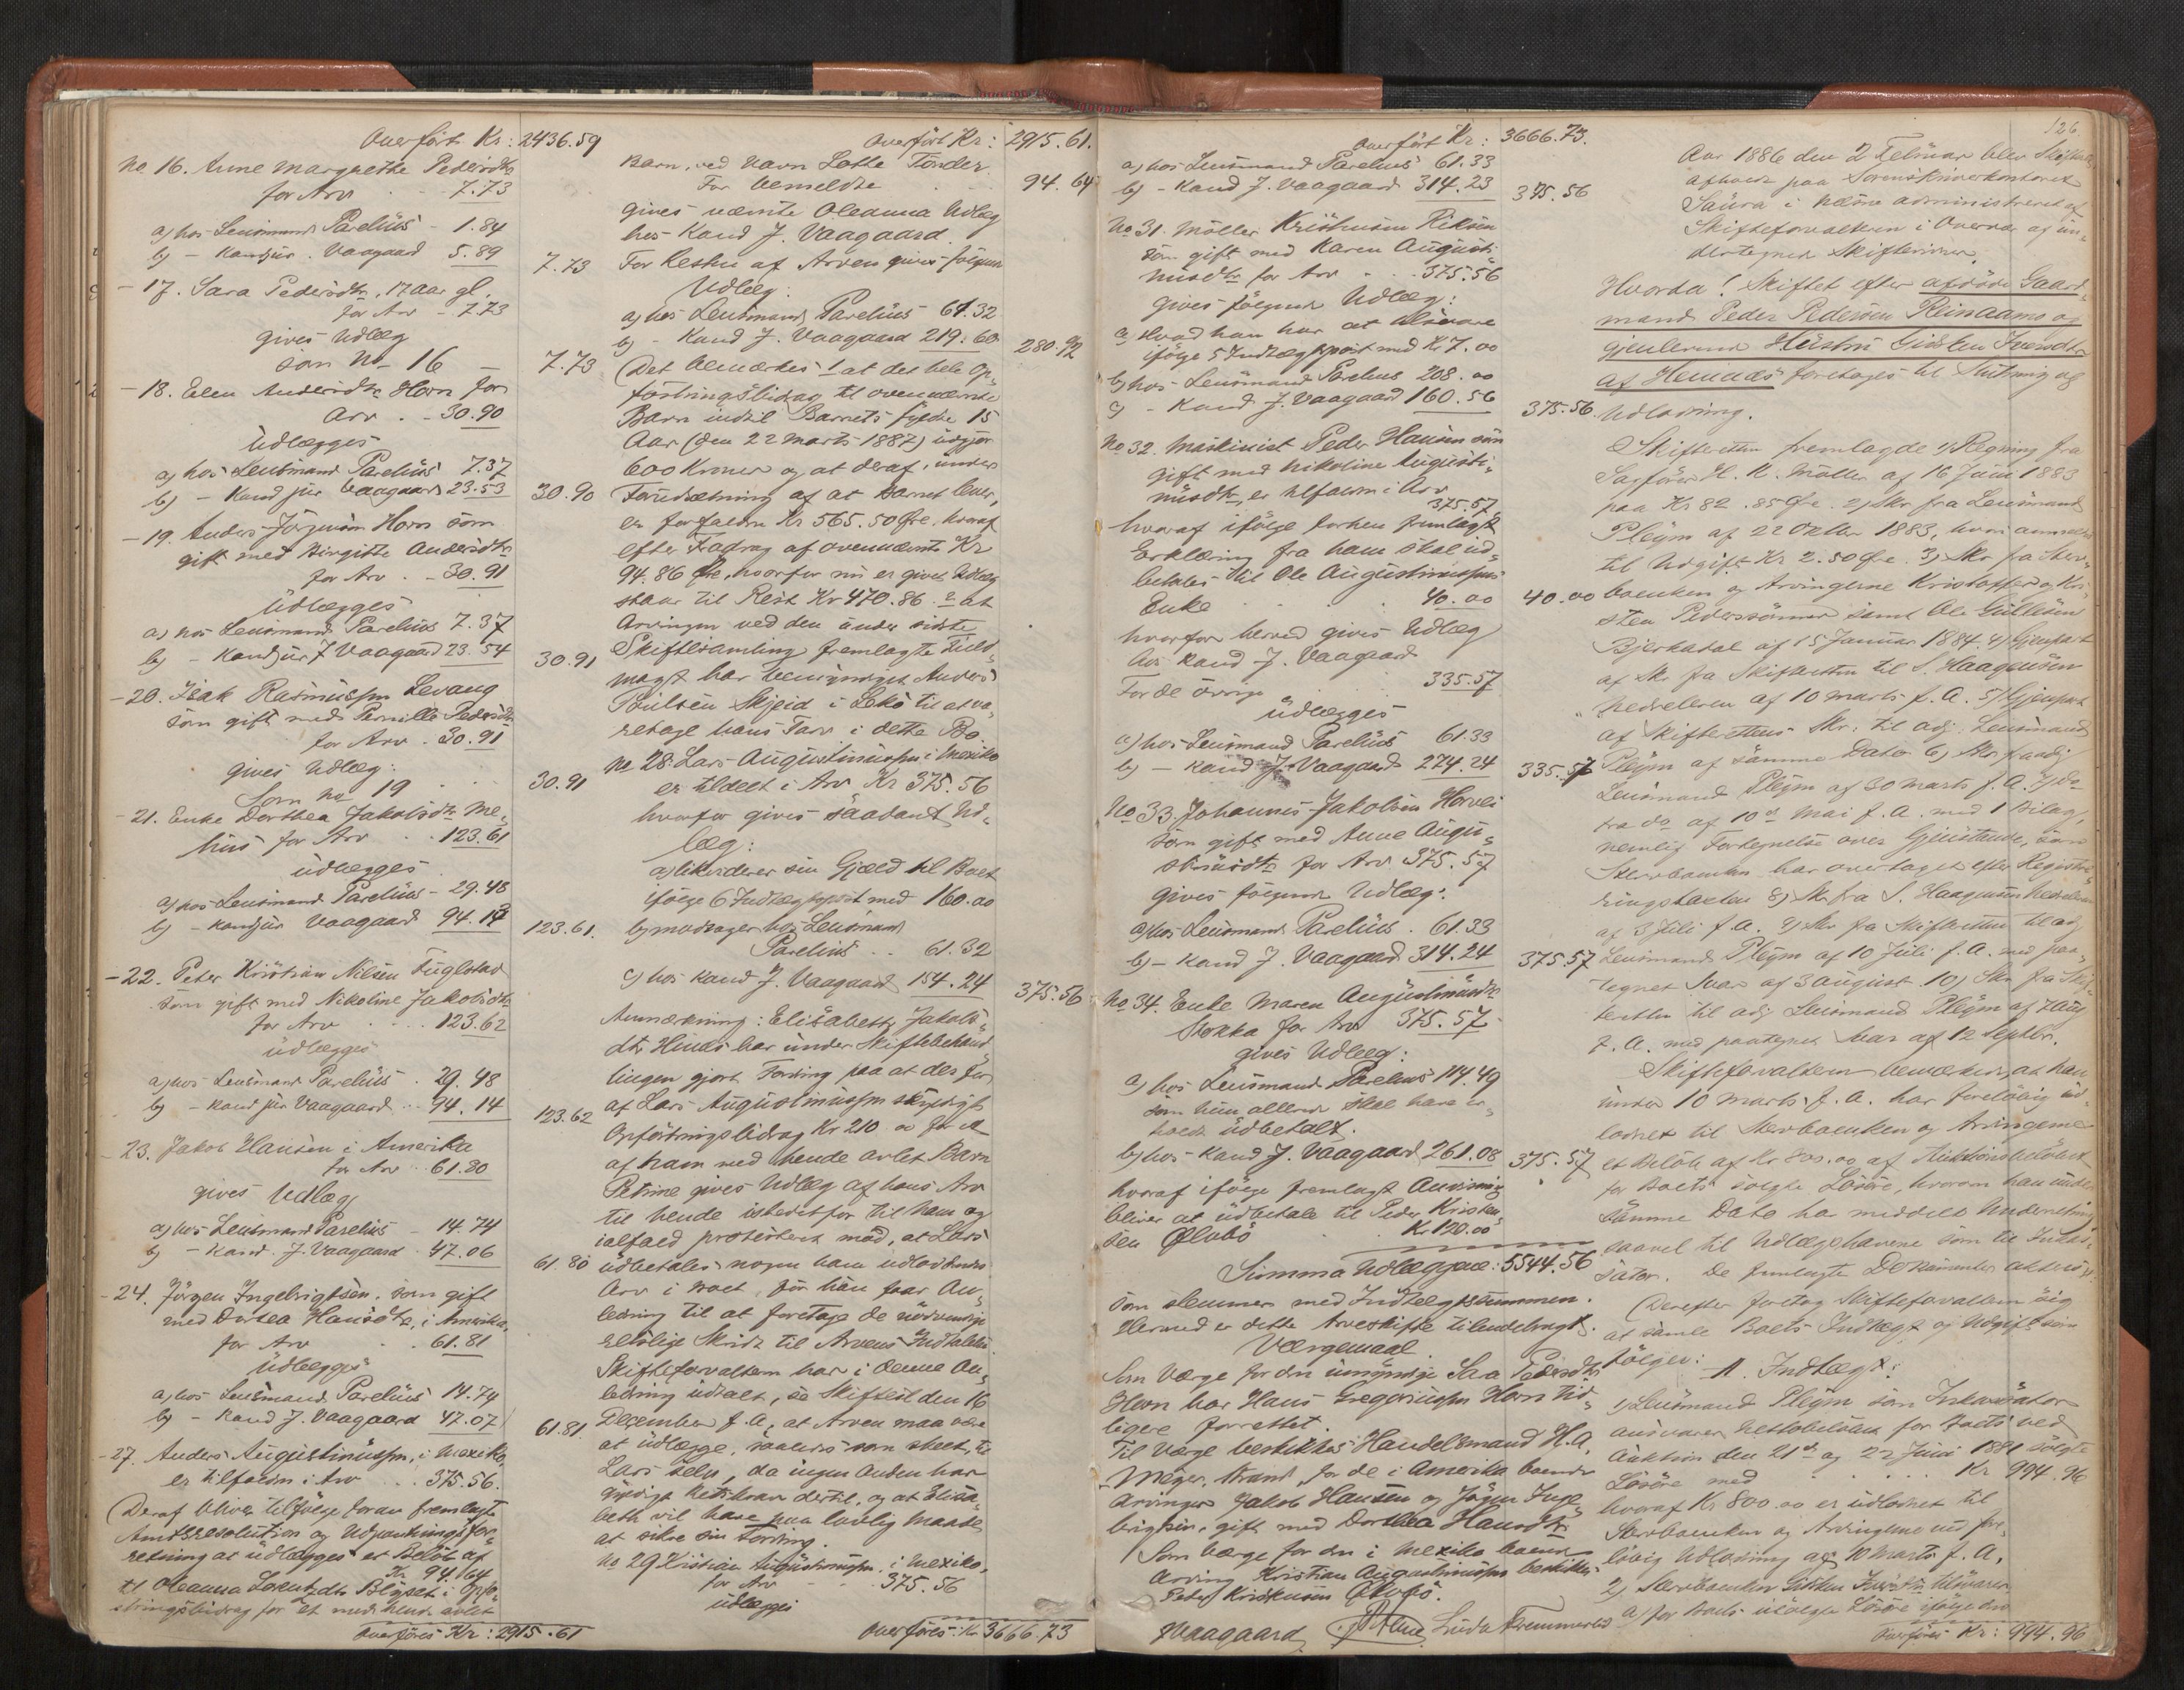 Overført Kr: 2436.59
No 16. Anne Margrethe Pedersdtr
for Arv - 7.73
a) hos Lensmand Parelius - 1.84
b) - Kand jur. Vaagaard 5.89 7.73
- 17. Sara Pedersdtr, 17 Aar gl.
for Arv - 7.73
gives Udlæg
som No 16 - 7.73
- 18. Elen Andersdtr Horn for
Arv - 30.90
Udlægges
a) hos Lensmand Parelius 7.37
b) - Kand jur Vaagaard 23.53 30.90
- 19. Anders Jörgensen Horn som
gift med Birgitte Andersdtr
for Arv - 30.91
Udlægges
a) hos Lensmand Parelius 7.37
b) - Kand jur J Vaagaard 23.54 30.91
- 20. Isak Rasmussen Levang
som gift med Pernille Pedersdtr
for Arv . 30.91
gives Udlæg:
Som No 19 30.91
- 21. Enke Dorthea Jakobsdtr Me-
hus for Arv . 123.61
udlægges
a) hos Lensmand Parelius - 29.48
b) - Kand jur Vaagaard 94.13 123.61.
- 22. Peter Kristian Nilsen Fuglstad
som gift med Nikoline Jakobsdtr
for Arv . . . 123.62
udlægges
a) hos Lensmand Parelius . 29.48
b) - Kand jur Vaagaard . 94.14 123.62
- 23. Jakob Hansen i Amerika
for Arv . 61.80
gives Udlæg
a) hos Lensmand Parelius - 14.74
b) - Kand. J. Vaagaard . 47.06 61.80
- 24. Jörgen Ingebrigtsen. som gift
med Dortea Hansdtr, i Amerika,
for Arv . 61.81
Udlægges
a) hos Lensmand Parelius 14.74
b) - Kand J. Vaagaard 47.07 61.81.
- 27. Anders Augustinussen, i Mexiko,
er tilfalden i Arv . . 375.56.
Deraf bliver tilfölge foran fremlagte
Amtsresolution og Udpantningsfor-
retning at udlægges et Beløb af
Kr 94.64
til Oleanna Lorentzdtr i Opfo-
stringsbidrag for et med hende avlet
Overføres Kr: 2915.61
Overført Kr: 2915.61.
Barn, ved Navn Lotte Tönder
For bemeldte . . 94.64
gives nævnte Oleanna Udlæg
hos Kand J. Vaagaard.
For Resten af Arven gives følgende
Udlæg:
a) hos Lensmand Parelius - 61.32
b) - Kand J. Vaagaard 219.60 280.92
Det bemærkes 1 at det hele Op-
fostringsbidrag til ovennævnte
Barn indtil Barnets fyldte 15
Aar (den 22 Marts 1887) udgjør
600 Kroner og at deraf, under
Forudsætning af at Barnet lever,
er forfalden Kr 565.50 Øre, hvoraf
efter Fradrag af ovennævnte Kr
94.86 Øre, hvorfor nu er givet Udlæg
staar til Rest Kr 470.86. 2 at
Arvingen ved den under sidste
Skiftesamling fremlagte Fuld-
magt har bemyndiget Anders
Poulsen Skjeid i Lekø til at va-
retage hans Tarv i dette Bo.
No 28. Lars Augustinussen i Mexiko
er tildelt i Arv Kr 375.56
hvorfor gives saadant Ud-
læg:
a) likviderer sin Gjæld til Boet
ifølge 6 Indtægtspost med 160.00
b) modtager hos Lensmand
Parelius . . 61.32
c) hos Kand J. Vaagaard 154.24 375.56
Anmærkning: Elisabeth Jakobs-
dtr Hinas har under Skiftebehand-
lingen gjort Fordring paa at der for
af Lars Augustinussen skyldigt
Opfostringsbidrag Kr 210.00 for et
af ham med hende avlet Barn
Petrine gives Udlæg af hans Arv
til hende istedetfor til ham og
ialfald protesteret mod, at Lars
udbetales nogen ham udloddende
Arv i Boet, før hun faar An-
ledning til at foretage de nödvendige
retslige Skridt til Arvens Indtalelse.
Skifteforvalteren har i denne An-
ledning udtalt, se Skiftest den 16
December f. A., at Arven maa være
at udlægge, saaledes som skeet, til
Lars selv, da ingen Anden har
gyldigt Retskrav dertil, og at Elisa-
beth vil have paa lovlig Maade
at sikre sin Fordring.
No 29 Kristian Augustinussen. i Mexiko,
for Arv - . 375.56
udlægges
Overføres: Kr 3666.73
Overført Kr: 3666.73.
a) hos Lensmand Parelius 61.33
b) - Kand J. Vaagaard 314.23 375.56
No 31. Möller Kristensen
som gift med Karen Augusti-
nusdtr for Arv . . 375.56
gives følgende Udlæg:
a) Hvad han har at tilsvare
ifølge 5 Indtægtspost med Kr 7.00
b) hos Lensmand Parelius 208.00
c) - Kand J. Vaagaard 160.56 375.56
No 32. Maskinist Peder Hansen som
gift med Nikoline Augusti-
nusdtr, er tilfalden i Arv
375.57
hvoraf ifølge forhen fremlagt
Erklæring fra ham skal ud-
betales til Ole Augustinussens
Enke . . 40.00 40.00
hvorfor herved gives Udlæg
hos Kand J. Vaagaard
For de øvrige . . 335.57
udlægges
a) hos Lensmand Parelius 61.33
b) - Kand J. Vaagaard 274.24 335.57
No 33. Johannes Jakobsen Horvei
som gift med Anne Augu-
stinusdtr for Arv 375.57
gives følgende Udlæg:
a) hos Lensmand Parelius . 61.33
b) - Kand J. Vaagaard 314.24 375.57
No 34. Enke Maren Augustinusdtr
Stokka for Arv 375.57
gives Udlæg:
a) hos Lensmand Parelius 114.49
som hun allerede skal have er-
holdt udbetalt.
b) hos Kand J. Vaagaard 261.08 375.57
hvoraf ifølge fremlagt Anvisning
bliver at udbetale til Peder Kristen-
sen Ølvbø . Kr 120.00
Summa Udlæggene: 5544.56
som stemmer med Indtægtssummen.
Hermed er dette Arveskifte tilendebragt.
Værgemaal.
Som Værge for den umyndige Sara Pedersdtr
Horn har Hans Gregoriussen Horn tid-
ligere forrettet.
Til Værge beskikkes Handelsmand H. A.
Meyer, Strand, for de i Amerika boende
Arvinger Jakob Hansen og Jörgen Inge-
brigtsen, gift med Dorthea Hansdtr
Som Værge for den i Mexiko boende
Arving Kristian Augustinussen beskikkes
Peder Kristensen Ølvbø.
Vaagaard
126.
Aar 1886 den 2 Februar blev Skifteret
afholdt paa Sorenskriverkontoret
Saura i Hemnæs administreret af
Skifteforvalteren i Overvær af un-
dertegnede Skiftevidner.
Hvorda! Skiftet efter afdöde Gaard-
mand Peder Pedersen Reinaamo og
gjenlevende Hustru Gidsken Ivarsdtr
af Hemnæs foretages til Slutning og
Udlodning.
Skifteretten fremlagde 1) Regning fra
Sagfører H. K. Möller af 16 Juni 1883
paa Kr 82.85 Øre. 2) Skr fra Lensmand
Pleym af 22 Oktbr 1883, hvori anmeldes
til Udgift Kr 2.50 Øre. 3) Skr fra Sterv-
boenken og Arvingerne Kristoffer og Kri-
sten Pederssønner samt Ole Gulliksen
Bjerkadal af 15 Januar 1884. 4) Gjenpart
af Skr fra Skifteretten til S. Haagensen
Nedrelleren af 10 Marts f. A. 5) Gjenpart
af Skifterettens Skr. til adj. Lensmand
Pleym af samme Dato 6) Skr fra adj
Lensmand Pleym af 30 Marts f. A. 7) Do
fra do af 10de Mai f. A. med 1 Bilag,
nemlig Fortegnelse over Gjenstande, som
Stervboenken har overtaget efter Registre-
ringstaxten 8) Skr fra S. Haagensen Nedrelleren
af 3 Juli f. A. 9) Skr fra Skifteretten til adj
Lensmand Pleym af 10 Juli f. A. med paa-
tegnet Svar af 3 August 10) Skr fra Skif-
teretten til adj Lensmand Pleym af 7 Aug
f. A. med paategnet Svar af 12 Septbr.
Skifteforvalteren bemærkede, at han
under 10 Marts f. A. har foreløbig ud-
loddet til Stervboenken og Arvingerne
et Beløb af Kr 800.00 af Auktionsbeløbet
for Boets solgte Løsøre, hvorom han under
samme Dato har meddelt Underretning
saavel til Udlægshaverne som til Inkas-
sator. De fremlagte Dokumenter
Derefter foretog Skifteforvalteren sig
at samle Boets Indtægt og Udgift som
følger: A. Indtægt:
1) Lensmand Pleym som Inkassator
ansvarer Nettobeløbet for Boets ved
Auktion den 21de og 22 Juni 1881 solgte
Løsøre med . . . . Kr 994.96
hvoraf Kr 800.00 er udloddet til
Stervboenken og Arvingerne ved fore-
løbig Udlodning af 10 Marts f. A.
2) Stervboenken Gidsken Ivarsdtr tilsvarer
a) for Boets usolgte Løsøre ifølge den
Overføres Kr: 994.96